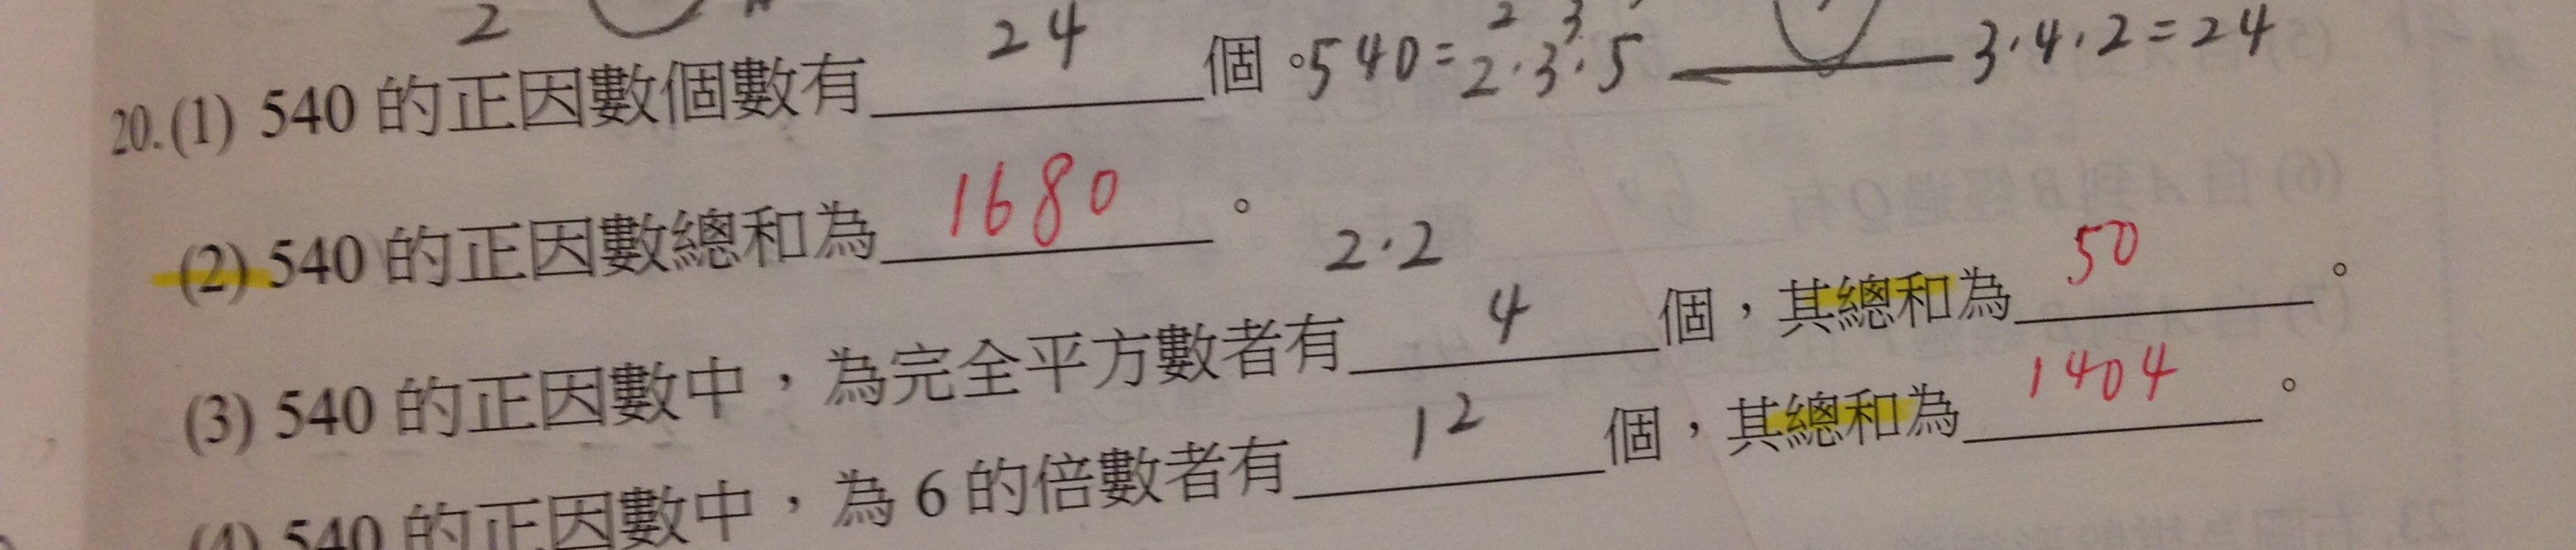 2
20.(1) 540 的正因數個數有 24 個。540=2²·3³·5 3·4·2=24
(2) 540 的正因數總和為 1680 。
2·2
(3) 540 的正因數中，為完全平方數者有 4 個，其總和為 50 。
(4) 540 的正因數中，為 6 的倍數者有 12 個，其總和為 1404 。